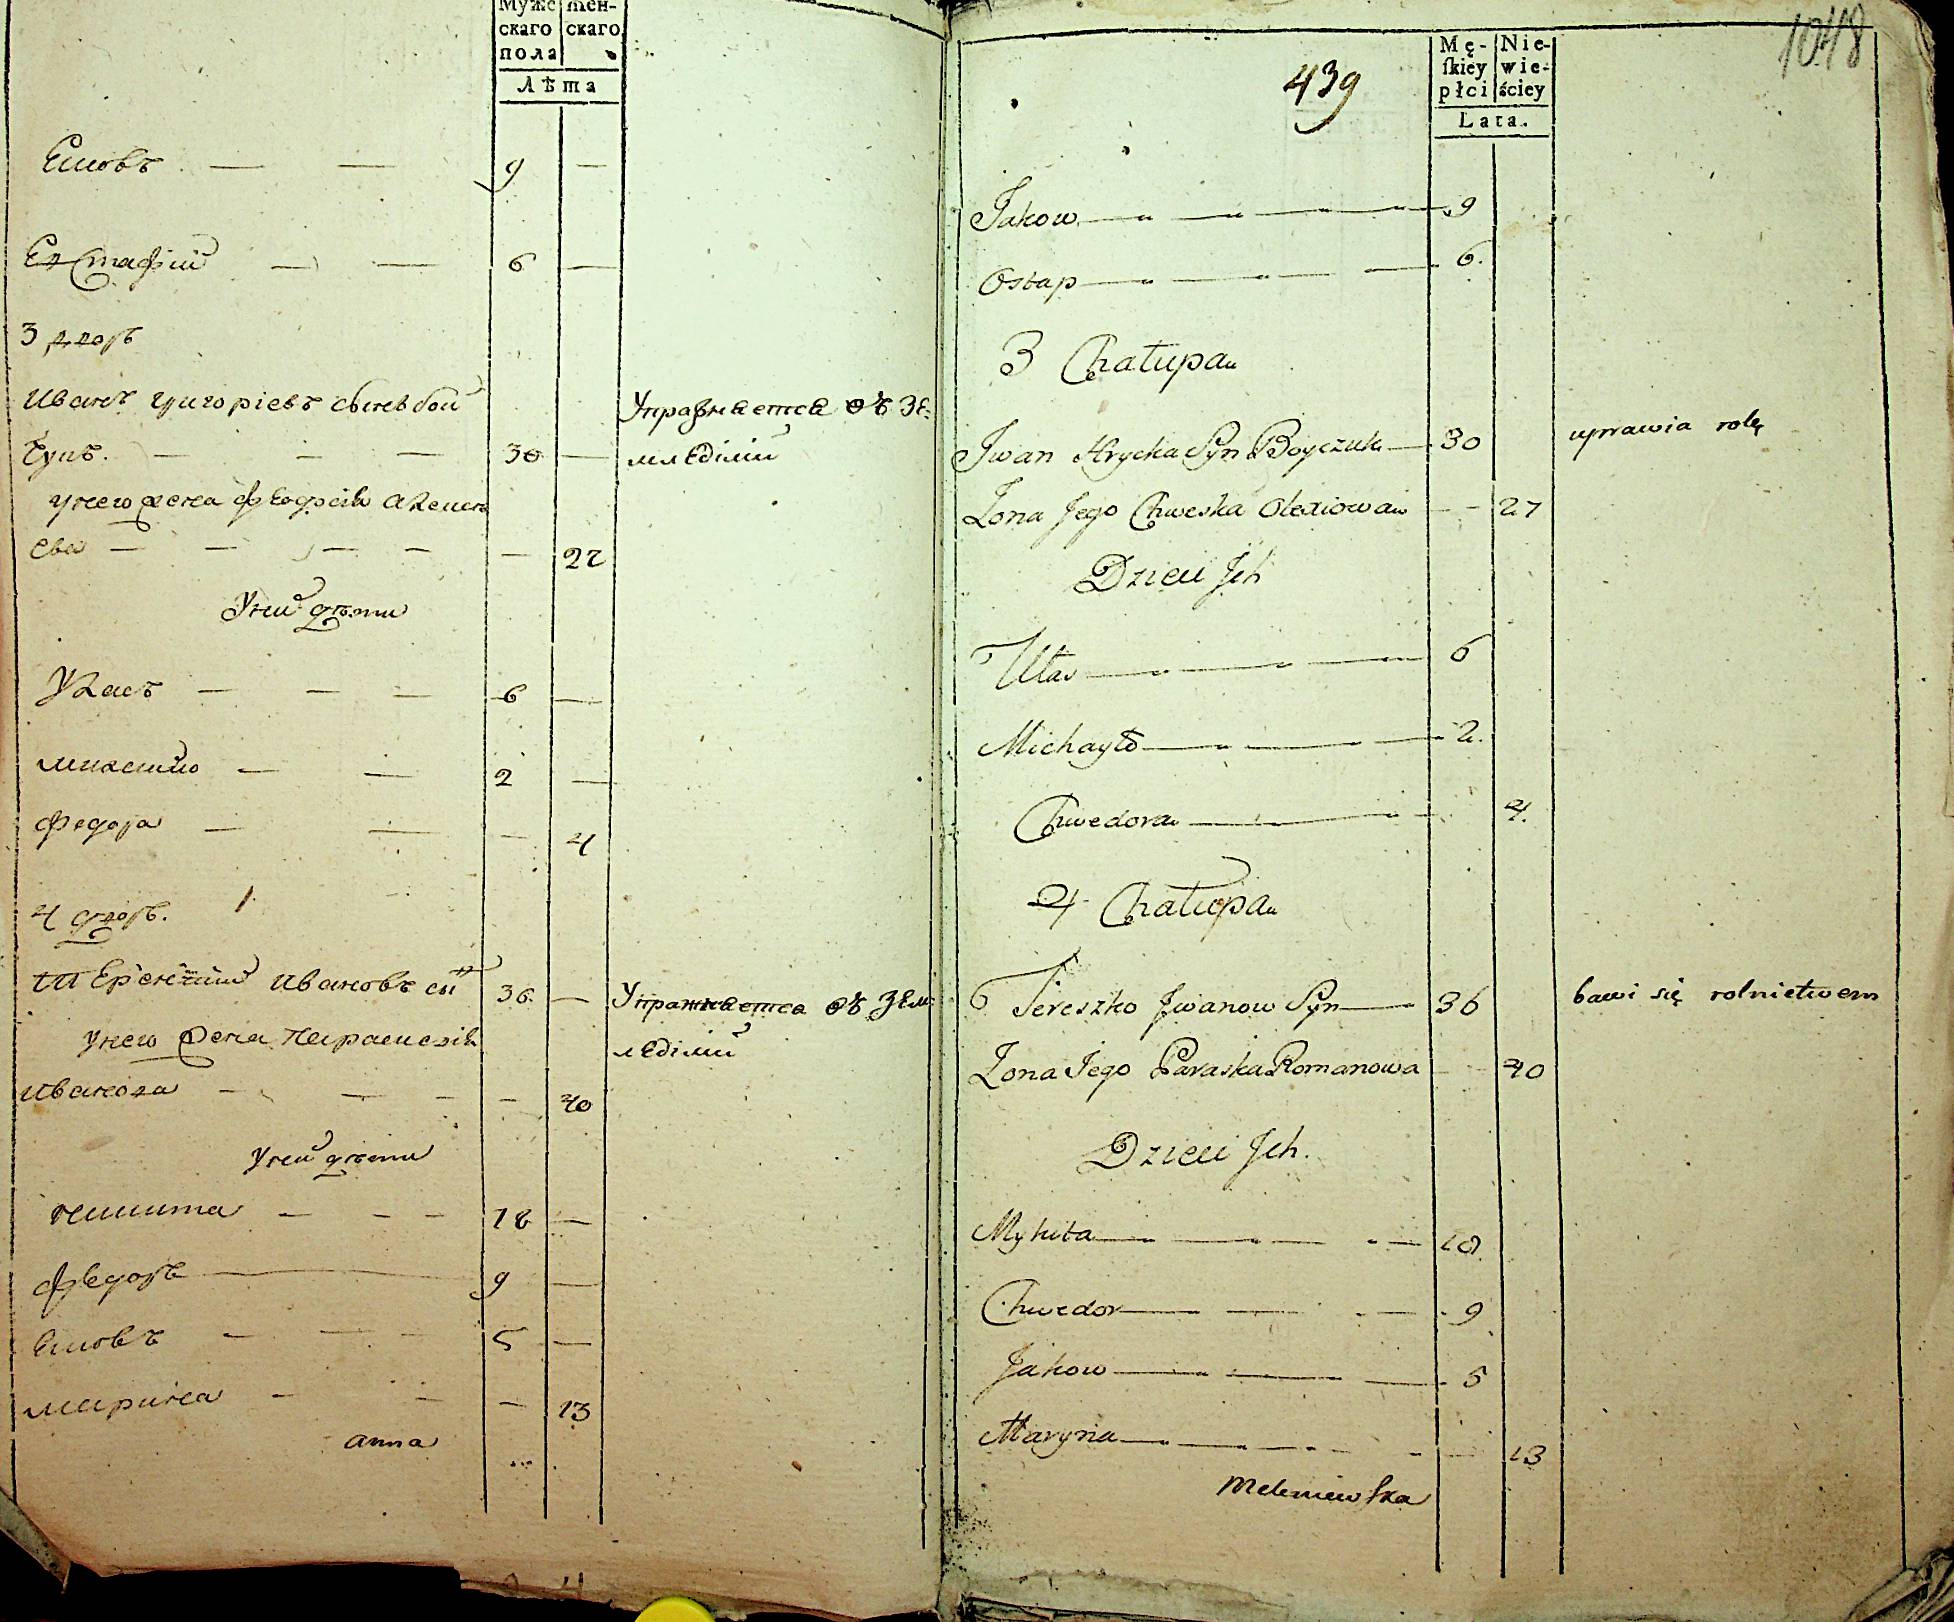 Муже
скаго
пола
жен-
скаго
Лѣта
Яковъ — — 9 —
Евстафій — — 6 —
3 дворъ
Иванъ григоріевъ сынъ бой
чукъ. — — — 30 —
Упражняется въ зе:
мледѣлии
унего жена феодосия алексѣ
ева — — — — — 27
Уних дѣти
Уласъ — — — 6 —
михайло — — 2 —
Федора — — — 4
4 дворъ.
Терентий Ивановъ сы 36 —
Упражняется въ зем:
ледѣлии
унего жена Параскевия
Иванова — — — — 40
Уних дѣти
Никита — — — 18 —
Федоръ — 9 —
Яковъ — — — 5 —
марина — — — 13
anna
1048
439
Mę-
skiey
płci
Nie-
wie-
ściey
Lata.
Jakow — — — — 9
Ostap — — — — 6.
3 Chałupa
Jwan Hryćka Syn Boyczuk — 30
uprawia rolę
Zona Jego Chweska Olexiowa - - 27
Dzieci Jch
Ułas — — — 6
Michayło — — — 2.
Chwedora — — — 4.
4 Chałupa
6 Tereszko Jwanow Syn — 36
bawi się rolnictwem
Zona Jego Paraska Romanowa - - 40
Dzieci Jch.
Mykita — — — 18
Chwedor — — — 9
Jakow — — — 5
Maryna — — — 13
Meleniewska